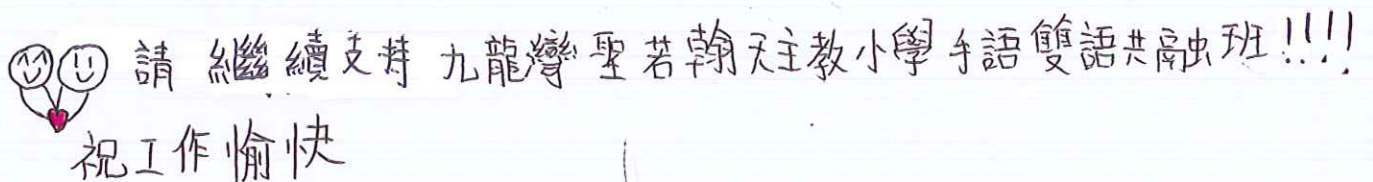 請繼續支持九龍灣聖若翰天主教小學手語雙語共融班!!!!
祝工作愉快